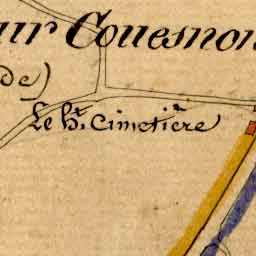 ur Couesnon
de)
Le ht. Cimetière